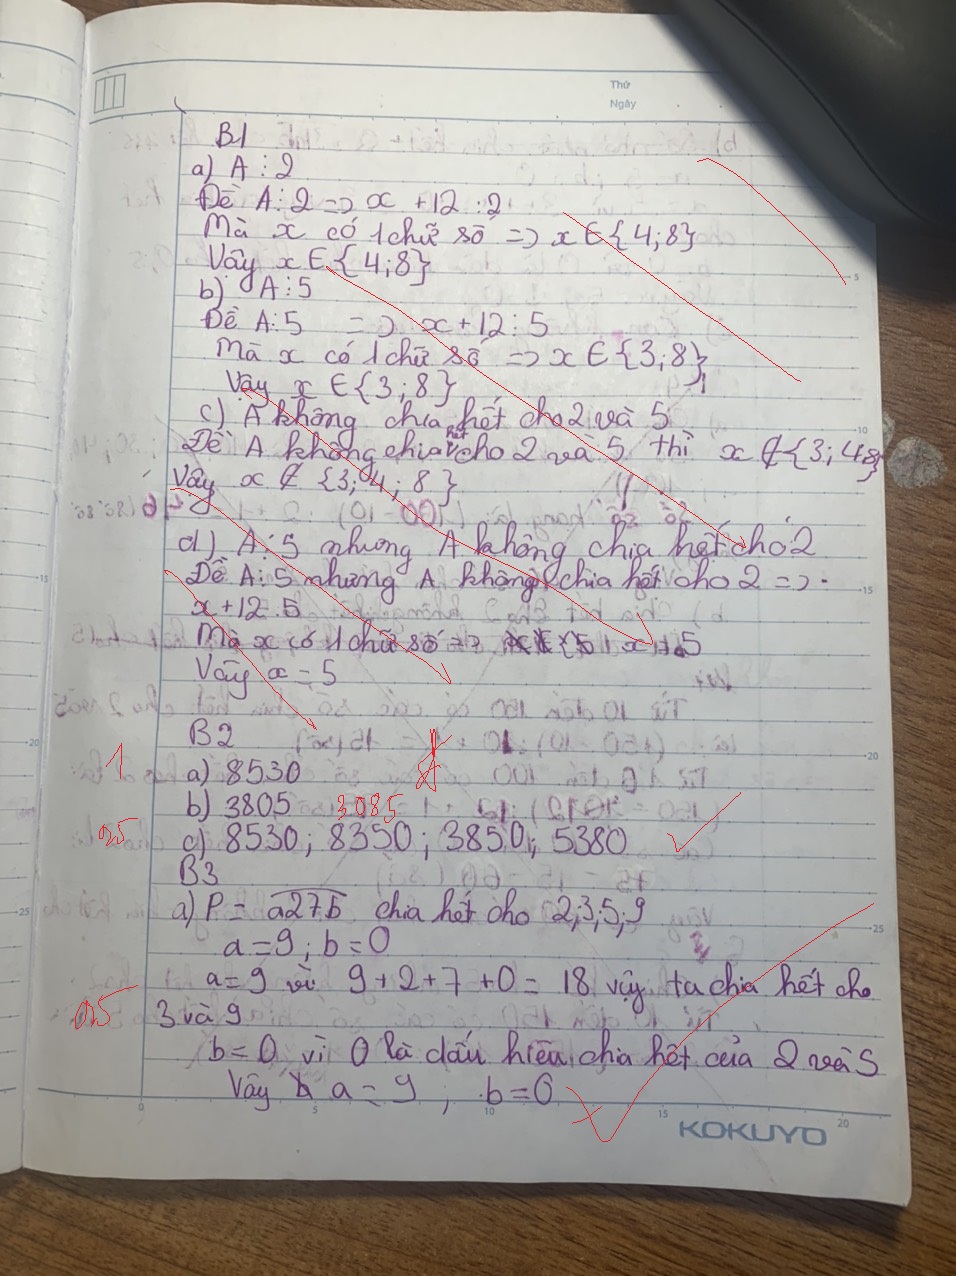 Thứ
Ngày
B1
a) A ⋮ 2
Để A ⋮ 2 => x + 12 ⋮ 2
Mà x có 1 chữ số => x ∈ {4; 8}
Vậy x ∈ {4; 8}
b) A ⋮ 5
Để A ⋮ 5 => x + 12 ⋮ 5
Mà x có 1 chữ số => x ∈ {3; 8}
Vậy x ∈ {3; 8}
c) A không chia hết cho 2 và 5
Để A không chia hết cho 2 và 5 thì x ∉ {3; 4; 8}
Vậy x ∉ {3; 4; 8}
d) A ⋮ 5 nhưng A không chia hết cho 2
Để A ⋮ 5 nhưng A không chia hết cho 2 =>
x + 12 ⋮ 5
Mà x có 1 chữ số => x = 5
Vậy x = 5
B2
1
a) 8530
b) 3805 3085
025 c) 8530; 8350; 3850; 5380
B3
a) P = a27b chia hết cho 2,3,5,9
a = 9; b = 0
a = 9 vì 9 + 2 + 7 + 0 = 18 vậy ta chia hết cho
025 3 và 9
b = 0 vì 0 là dấu hiệu chia hết của 2 và 5
Vậy a = 9; b = 0
KOKUYO